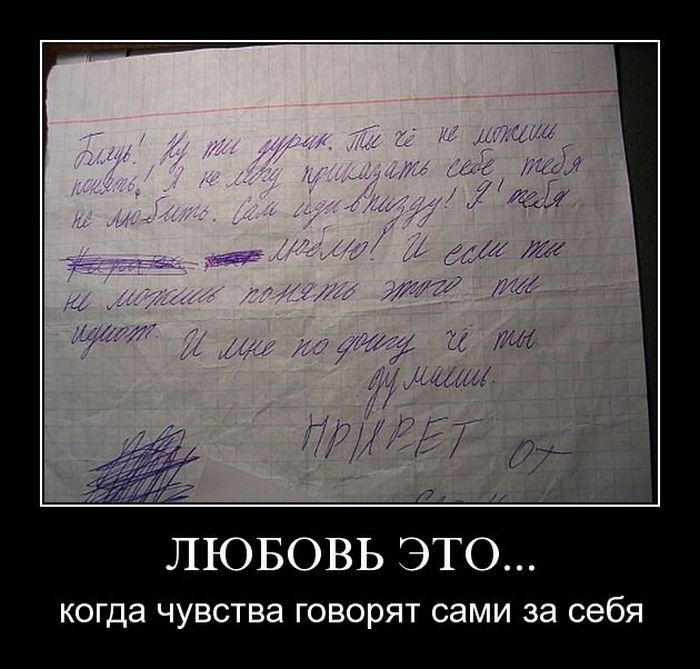 Блядь! Ну ты дурик. Ты чё не можешь
понять! Я не могу приказать себе тебя
не любить. Сам иди в пизду! Я тебя
люблю! И если ты
не можешь понять этого ты
идиот.
И мне по фигу чё ты
думаешь.
ПРИВЕТ от
ЛЮБОВЬ ЭТО...
когда чувства говорят сами за себя